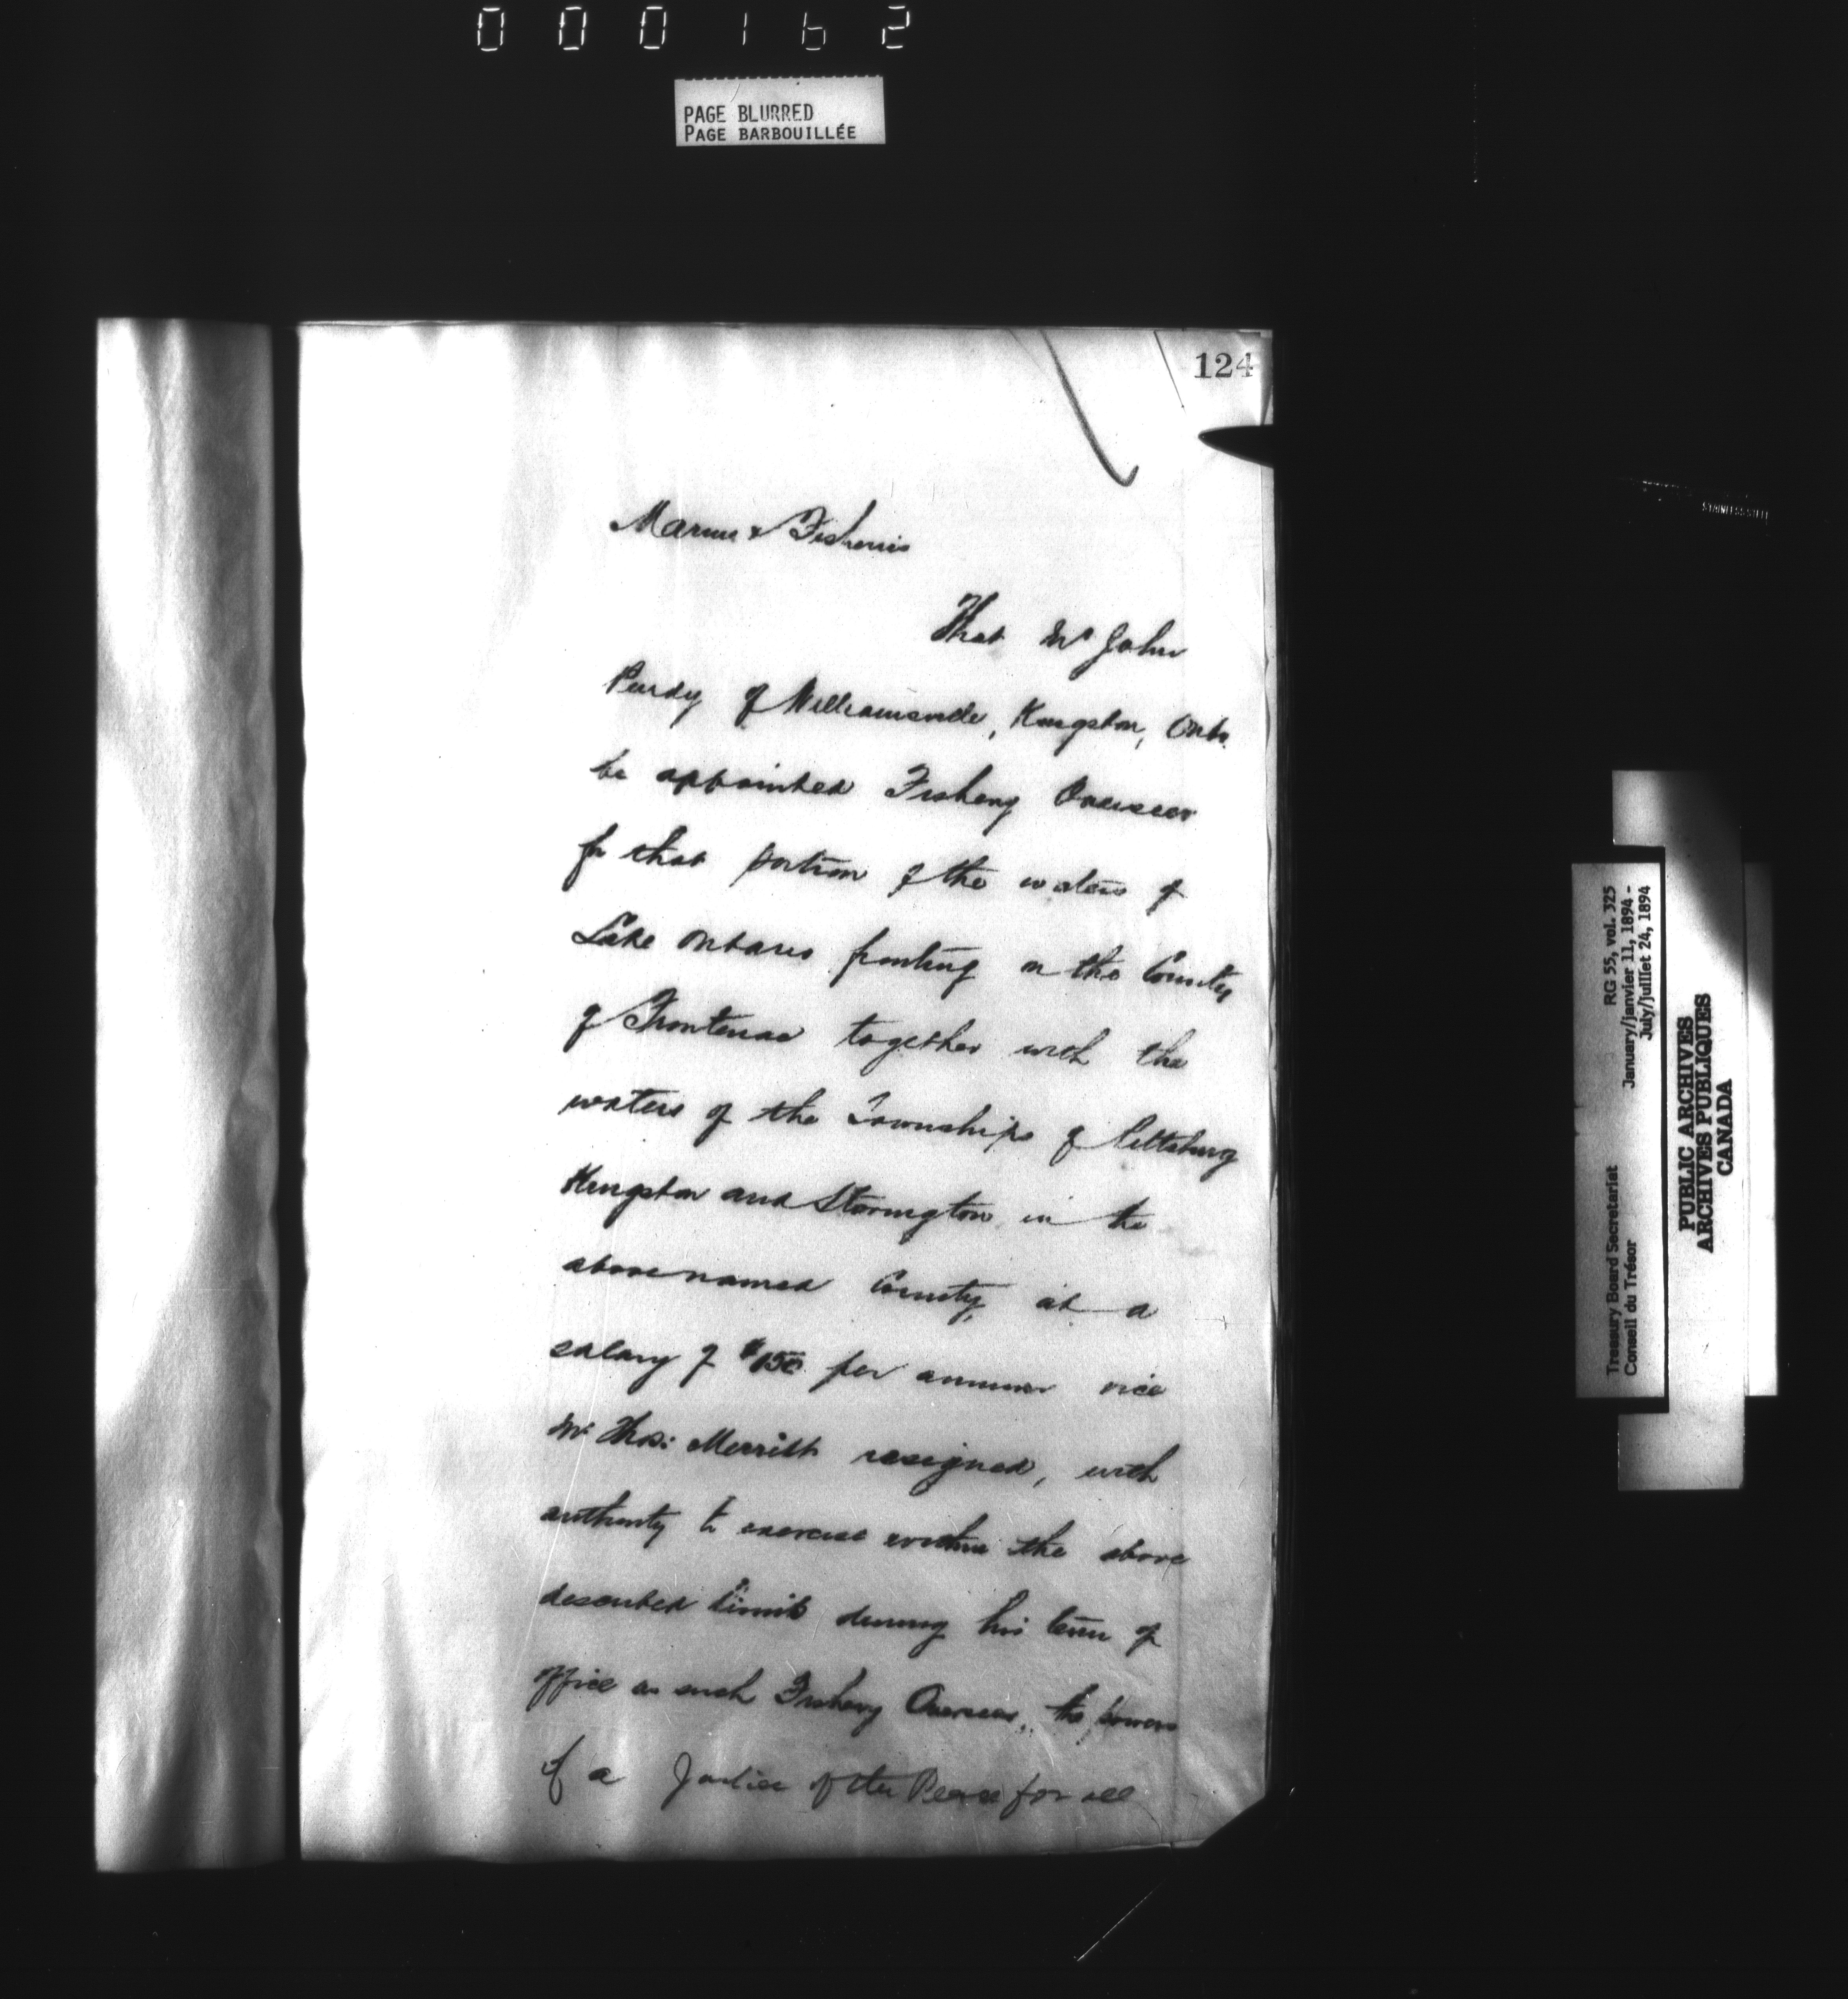 000162
PAGE BLURRED
PAGE BARBOUILLÉE
124
Marine & Fisheries
That Mr John
Purdy of Williamsville, Kingston, Onto.
be appointed Fishery Overseer
for that portion of the waters of
Lake Ontario fronting on the County
of Frontenac together with the
waters of the Townships of Pittsburg
Kingston and Storrington in the
abovenamed County, at a
salary of $150 per annum vice
Mr Thos: Merritt resigned, with
authority to exercise within the above
described limits during his term of
office as such Fishery Overseer, the powers
of a Justice of the Peace for all
STAINLESS STEEL
Treasury Board Secretariat RG 55, vol. 325
Conseil du Trésor January/janvier 11, 1894 -
July/juillet 24, 1894
PUBLIC ARCHIVES
ARCHIVES PUBLIQUES
CANADA